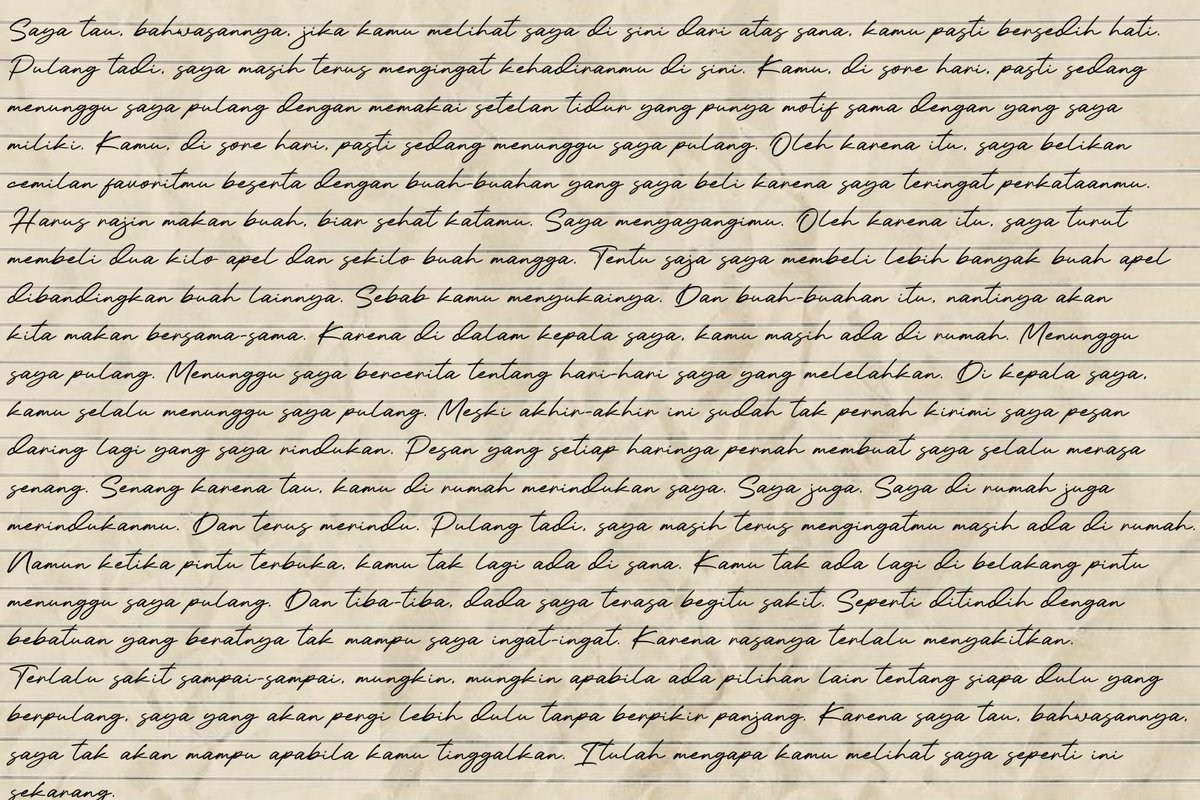 Saya tau, bahwasannya, jika kamu melihat saya di sini dari atas sana, kamu pasti bersedih hati.
Pulang tadi, saya masih terus mengingat kehadiranmu di sini. Kamu, di sore hari, pasti sedang
menunggu saya pulang dengan memakai setelan tidur yang punya motif sama dengan yang saya
miliki. Kamu, di sore hari, pasti sedang menunggu saya pulang. Oleh karena itu, saya belikan
cemilan favoritmu beserta dengan buah-buahan yang saya beli karena saya teringat perkataanmu.
Harus rajin makan buah, biar sehat katamu. Saya menyayangimu. Oleh karena itu, saya turut
membeli dua kilo apel dan sekilo buah mangga. Tentu saja saya membeli lebih banyak buah apel
dibandingkan buah lainnya. Sebab kamu menyukainya. Dan buah-buahan itu, nantinya akan
kita makan bersama-sama. Karena di dalam kepala saya, kamu masih ada di rumah. Menunggu
saya pulang. Menunggu saya bercerita tentang hari-hari saya yang melelahkan. Di kepala saya,
kamu selalu menunggu saya pulang. Meski akhir-akhir ini sudah tak pernah kirimi saya pesan
daring lagi yang saya rindukan. Pesan yang setiap harinya pernah membuat saya selalu merasa
senang. Senang karena tau, kamu di rumah merindukan saya. Saya juga. Saya di rumah juga
merindukanmu. Dan terus merindu. Pulang tadi, saya masih terus mengingatmu masih ada di rumah.
Namun ketika pintu terbuka, kamu tak lagi ada di sana. Kamu tak ada lagi di belakang pintu
menunggu saya pulang. Dan tiba-tiba, dada saya terasa begitu sakit. Seperti ditindih dengan
bebatuan yang beratnya tak mampu saya ingat-ingat. Karena rasanya terlalu menyakitkan.
Terlalu sakit sampai-sampai, mungkin, mungkin apabila ada pilihan lain tentang siapa dulu yang
berpulang, saya yang akan pergi lebih dulu tanpa berpikir panjang. Karena saya tau, bahwasannya,
saya tak akan mampu apabila kamu tinggalkan. Itulah mengapa kamu melihat saya seperti ini
sekarang.